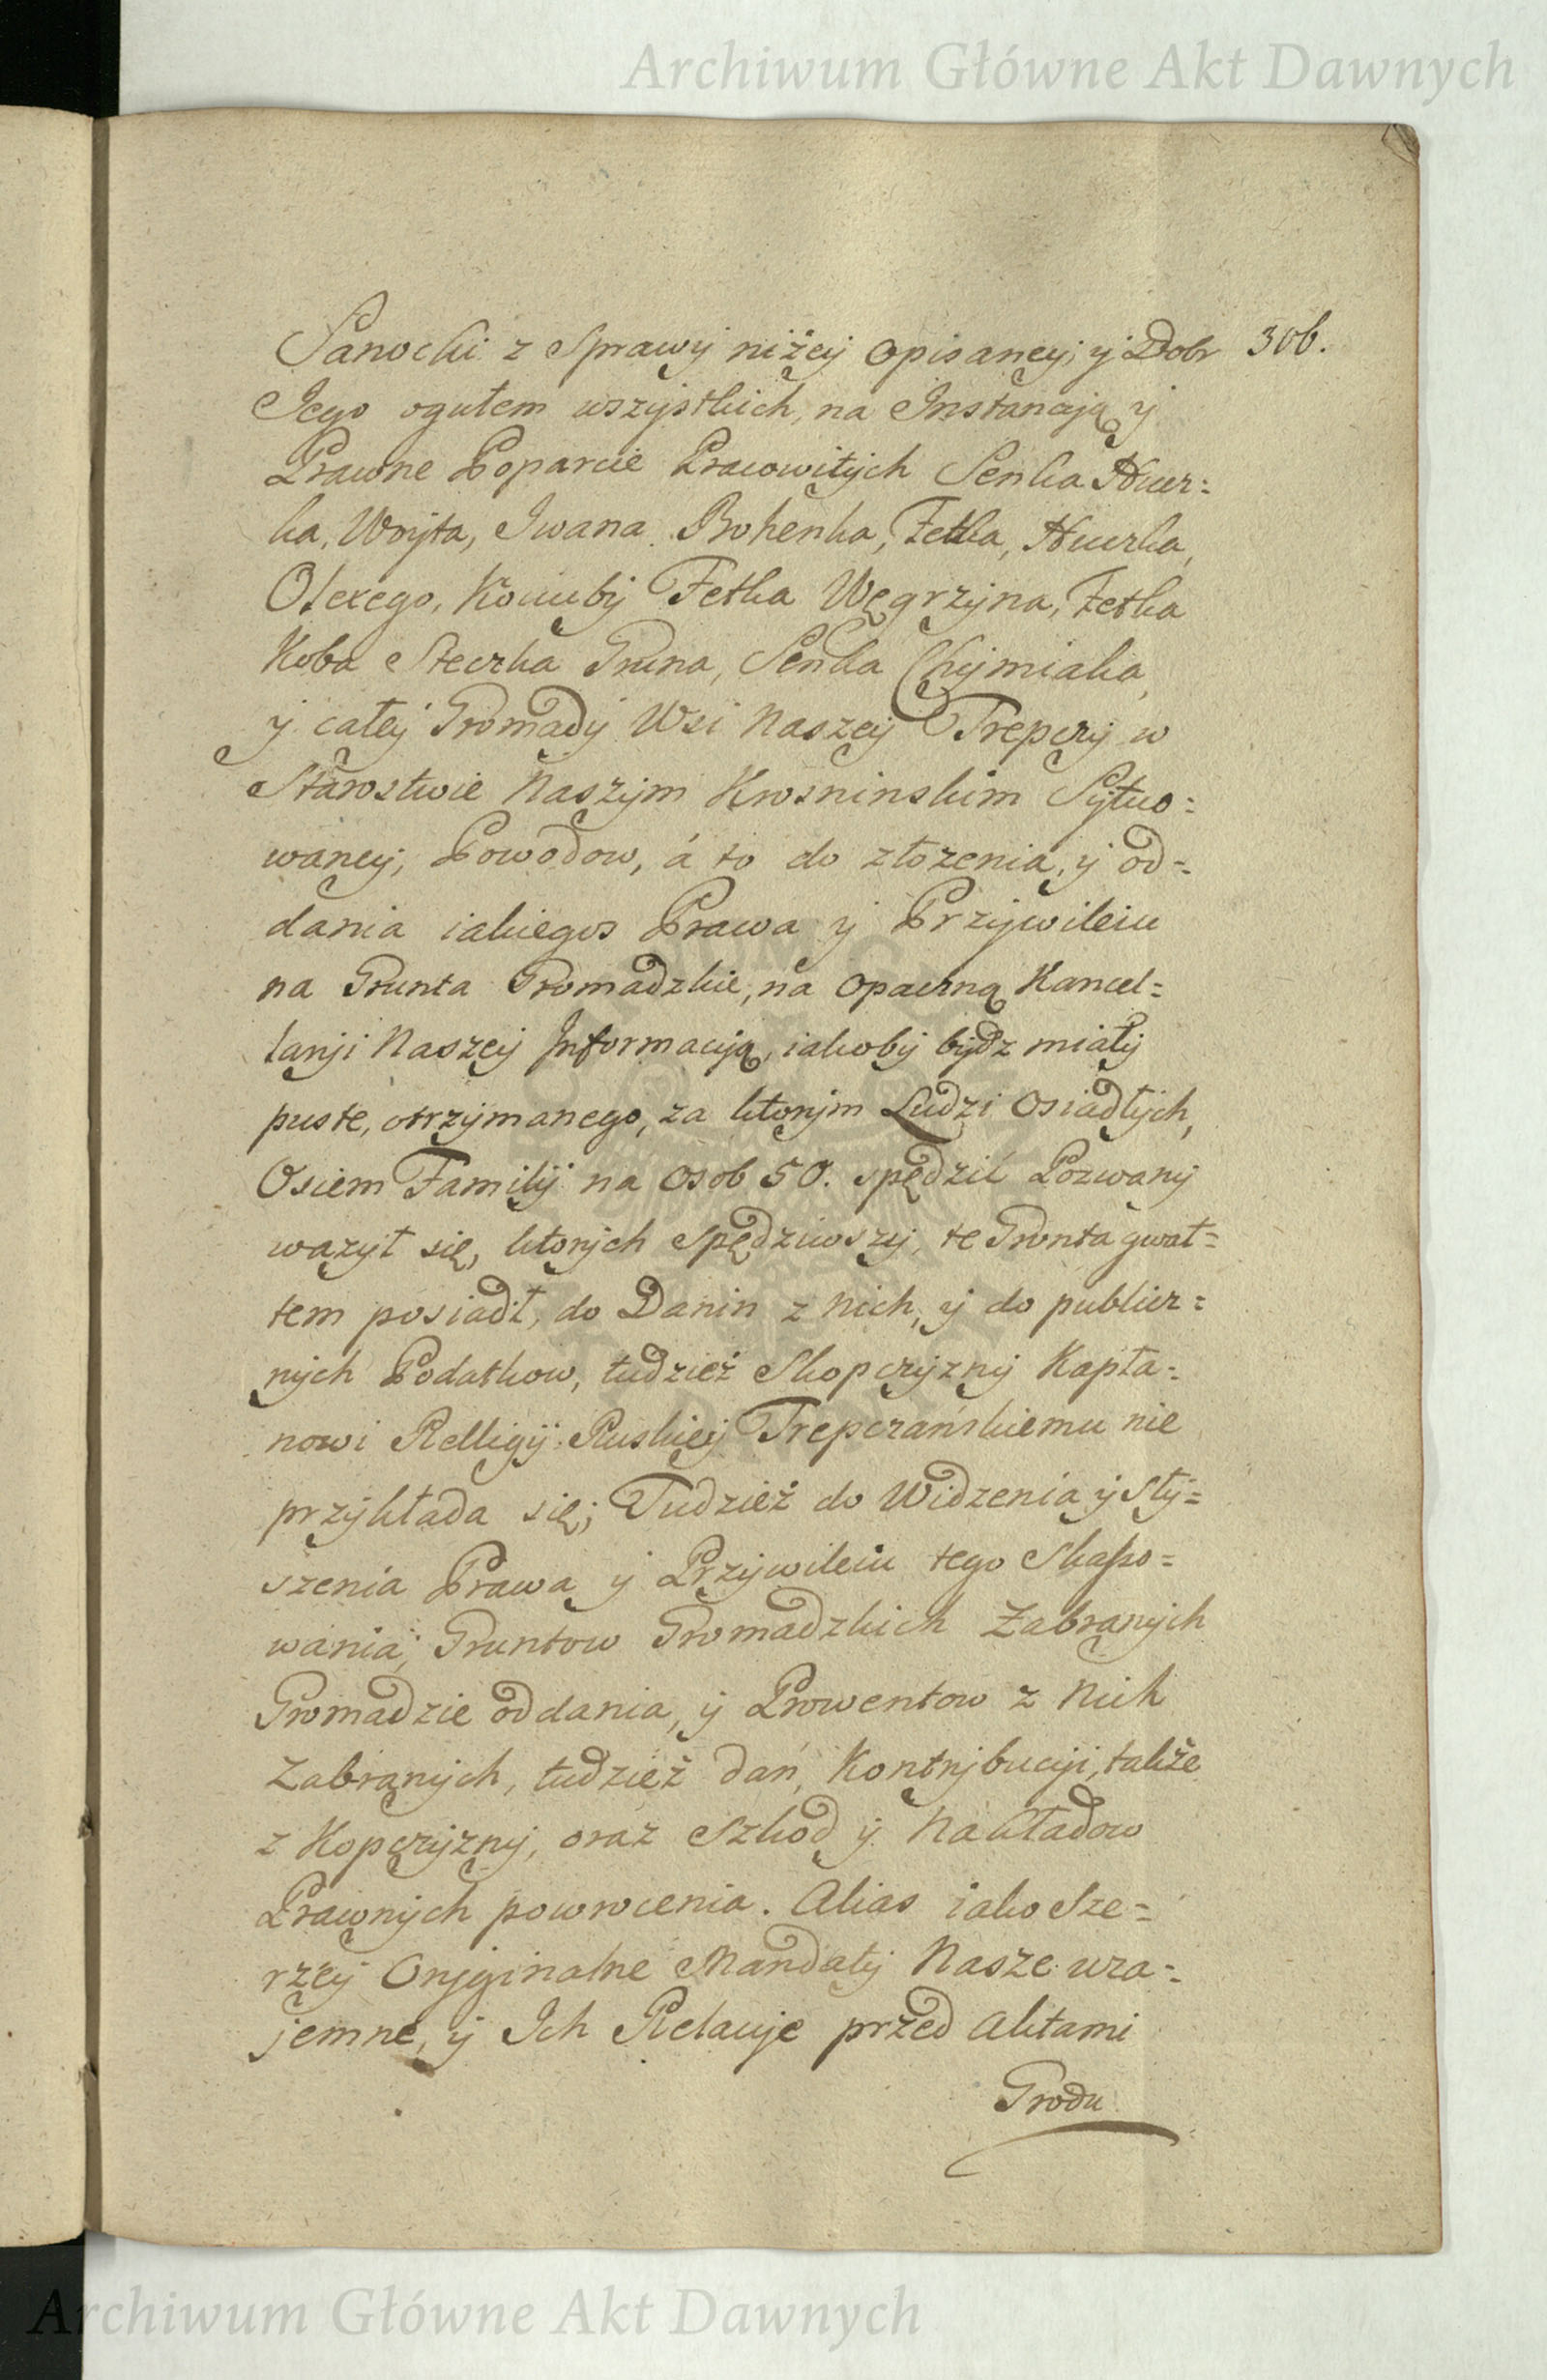 Archiwum Główne Akt Dawnych
Sanocki z Sprawy niżey opisaney, y Dobr 306.
Jego ogułem wszystkich, na Instancyą y
Prawne Poparcie Pracowitych Senka Hucz=
ka, Woyta, Iwana Bohenka, Fetka, Huczka,
Olexego, Kociuby Fetka Węgrzyna, Fetka
Koba Steczka Gruna, Senka Chymiaka,
y całey Gromady Wsi Naszey Trepczy w
Starostwie Naszym Krosninskim Sytuo=
waney, Powodow, á to do złozenia, y od=
dania iakiegos Prawa y Przywileiu
na Grunta Gromadzkie, na opaczną Kancel=
laryi Naszey Informacyą, iakoby bydz miały
puste, otrzymanego, za ktorym Ludzi Osiadłych,
Osiem Familij na Osob 50. spędzić Pozwany
wazył się, ktorych Spędziwszy, te Gronta gwał=
tem posiadł, do Danin z nich, y do publicz=
nych Podatkow, tudzież Skopczyzny Kapła=
nowi Relligij Ruskiey Trepczańskiemu nie
przykłada się; Tudzież do Widzenia y Sły=
szenia Prawa y Przywileiu tego Skasso=
wania, Gruntow Gromadzkich Zabranych
Gromadzie oddania, y Prowentow z Nich
Zabranych, tudzież dań, Kontrybucyi, także
z Kopczyzny, oraz Szkod y Nakładow
Prawnych powrocenia. Alias iako Sze=
rzey Oryginalne Mandaty Nasze wza=
jemne, y Ich Relacye przed Aktami
Grodu
Archiwum Główne Akt Dawnych